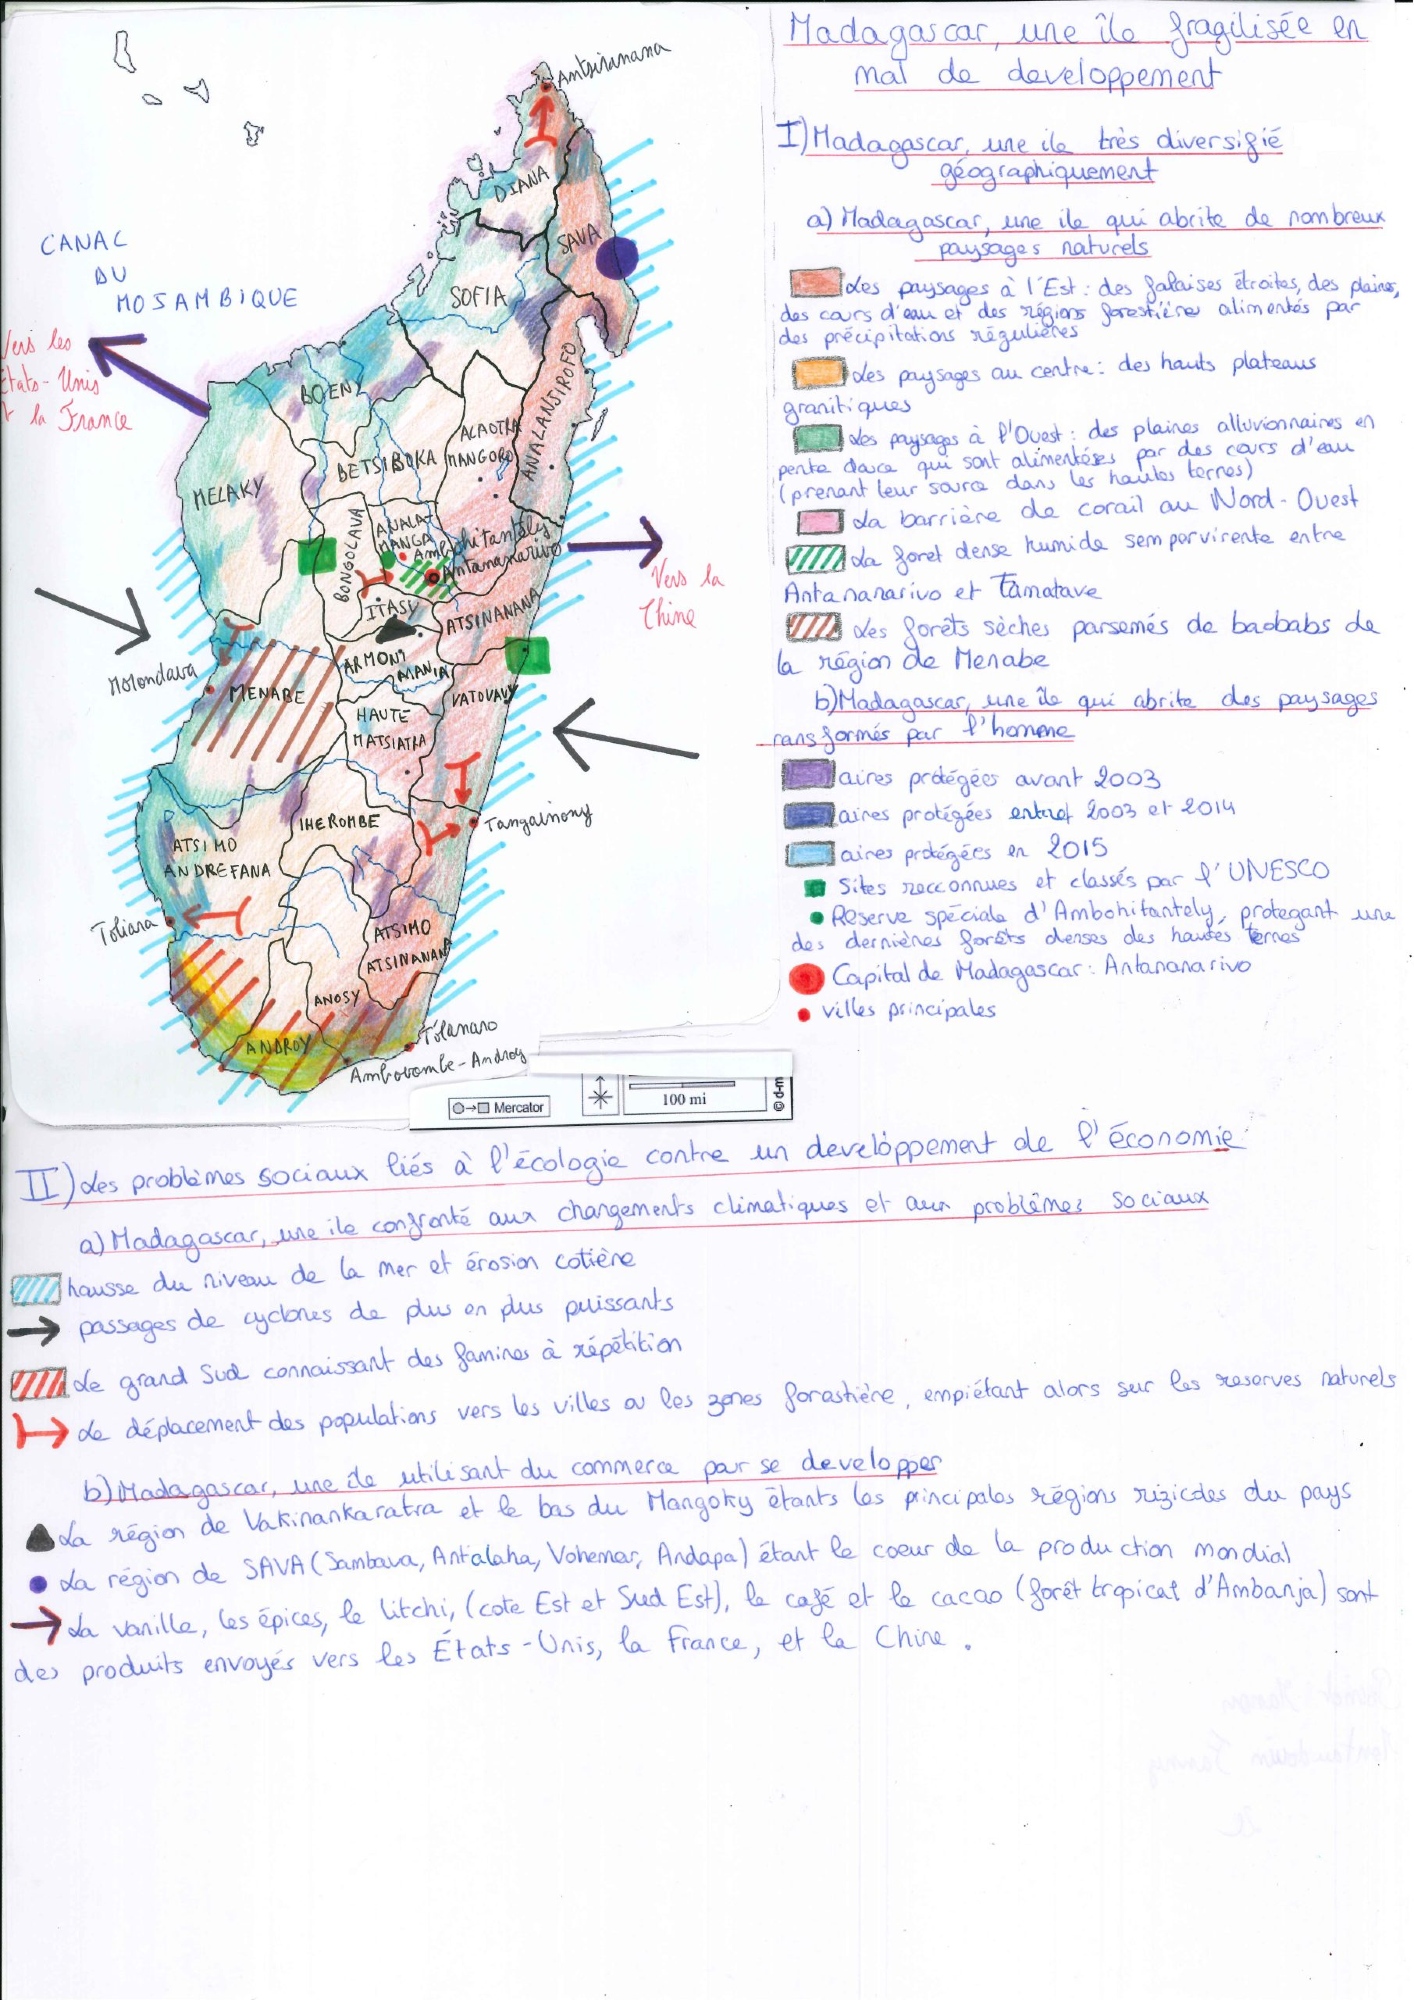 Madagascar, une île fragilisée en
mal de developpement
I) Madagascar, une ile très diversifié
géographiquement
a) Madagascar, une ile qui abrite de nombreux
paysages naturels
Les paysages à l'Est : des falaises étroites, des plaines,
des cours d'eau et des régions forestières alimentés par
des précipitations régulières
Les paysages au centre : des hauts plateaus
granitiques
Les paysages à l'Ouest : des plaines alluvionnaires en
pente douce qui sont alimentéses par des cours d'eau
(prenant leur source dans les hautes terres)
La barrière de corail au Nord-Ouest
La foret dense humide sempervirente entre
Antananarivo et Tamatave
Les forêts sèches parsemés de baobabs de
la région de Menabe
b) Madagascar, une île qui abrite des paysages
ransformés par l'homme
aires protégées avant 2003
aires protégées entre 2003 et 2014
aires protégées en 2015
Sites reconnues et classés par l'UNESCO
Réserve spéciale d'Ambohitantely, protegant une
des dernières forêts denses des hautes terres
Capital de Madagascar : Antananarivo
villes principales
Antsiranana
DIANA
SAVA
CANAL
DU
MOSAMBIQUE
SOFIA
Vers les
États-Unis
et la France
BOENY
ANALANJIROFO
ALAOTRA
MANGORO
BETSIBOKA
MELAKY
BONGOLAVA
ANALA-
MANGA
Ambohitantely
Antananarivo
Vers la
Chine
ITASY
ATSINANANA
ARMONI
MANIA
Molondava
MENABE
VATOVAVY
HAUTE
MATSIATRA
IHEROMBE
Tangainony
ATSIMO
ANDREFANA
Toliara
ATSIMO
ATSINANANA
ANOSY
ANDROY
Tôlanaro
Ambovombe-Androy
Mercator
100 mi
© d-m
II) Les problèmes sociaux liés à l'écologie contre un developpement de l'économie
a) Madagascar, une ile confronté aux changements climatiques et aux problèmes sociaux
hausse du niveau de la mer et érosion cotière
passages de cyclones de plus en plus puissants
Le grand Sud connaissant des famines à répétition
Le déplacement des populations vers les villes ou les zones forastière, empiétant alors sur les reserves naturels
b) Madagascar, une île utilisant du commerce pour se developper
La région de Vakinankaratra et le bas du Mangoky étants les principales régions rizicoles du pays
La région de SAVA (Sambava, Antalaha, Vohemar, Andapa) étant le coeur de la production mondial
La vanille, les épices, le litchi, (cote Est et Sud Est), le café et le cacao (forêt tropical d'Ambanja) sont
des produits envoyés vers les États-Unis, la France, et la Chine.